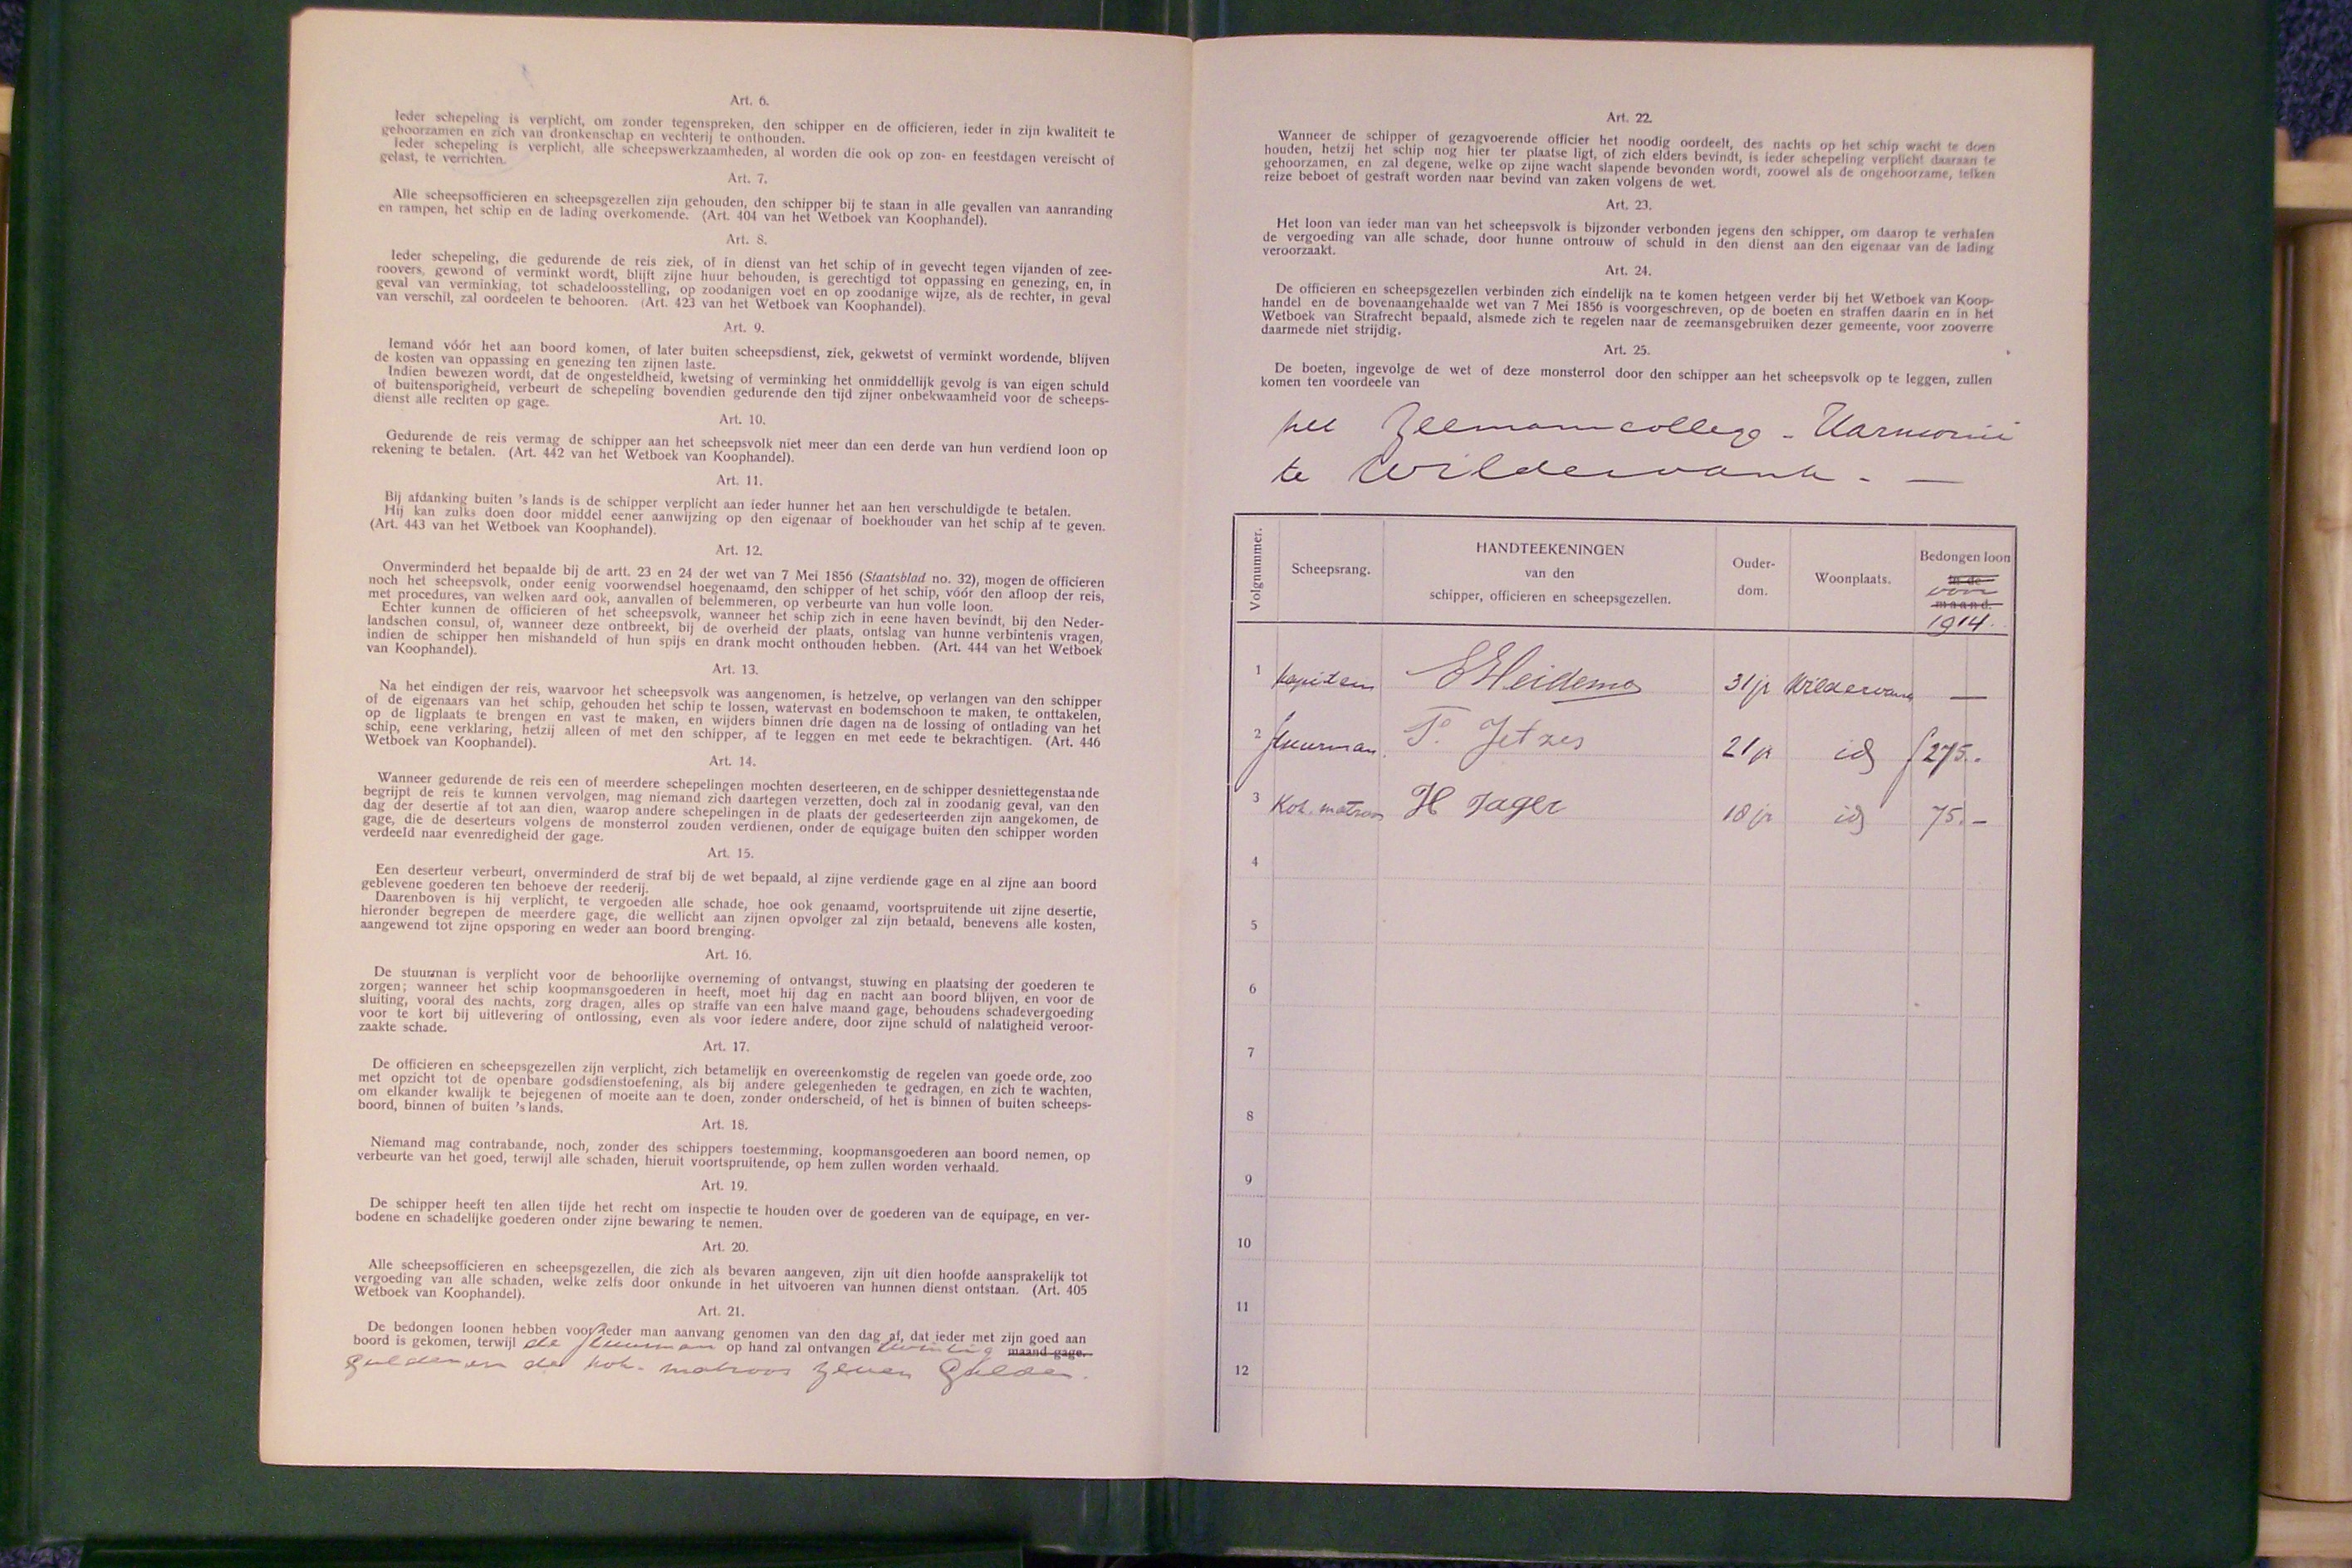 Art. 6.
Ieder schepeling is verplicht, om zonder tegenspreken, den schipper en de officieren, ieder in zijn kwaliteit te
gehoorzamen en zich van dronkenschap en vechterij te onthouden.
Ieder schepeling is verplicht, alle scheepswerkzaamheden, al worden die ook op zon- en feestdagen vereischt of
gelast, te verrichten.
Art. 7.
Alle scheepsofficieren en scheepsgezellen zijn gehouden, den schipper bij te staan in alle gevallen van aanranding
en rampen, het schip en de lading overkomende. (Art. 404 van het Wetboek van Koophandel).
Art. 8.
Ieder schepeling, die gedurende de reis ziek, of in dienst van het schip of in gevecht tegen vijanden of zee-
roovers, gewond of verminkt wordt, blijft zijne huur behouden, is gerechtigd tot oppassing en genezing, en, in
geval van verminking, tot schadeloosstelling, op zoodanigen voet en op zoodanige wijze, als de rechter, in geval
van verschil, zal oordeelen te behooren. (Art. 423 van het Wetboek van Koophandel).
Art. 9.
Iemand vóór het aan boord komen, of later buiten scheepsdienst, ziek, gekwetst of verminkt wordende, blijven
de kosten van oppassing en genezing ten zijnen laste.
Indien bewezen wordt, dat de ongesteldheid, kwetsing of verminking het onmiddellijk gevolg is van eigen schuld
of buitensporigheid, verbeurt de schepeling bovendien gedurende den tijd zijner onbekwaamheid voor de scheeps-
dienst alle rechten op gage.
Art. 10.
Gedurende de reis vermag de schipper aan het scheepsvolk niet meer dan een derde van hun verdiend loon op
rekening te betalen. (Art. 442 van het Wetboek van Koophandel).
Art. 11.
Bij afdanking buiten 's lands is de schipper verplicht aan ieder hunner het aan hen verschuldigde te betalen.
Hij kan zulks doen door middel eener aanwijzing op den eigenaar of boekhouder van het schip af te geven.
(Art. 443 van het Wetboek van Koophandel).
Art. 12.
Onverminderd het bepaalde bij de artt. 23 en 24 der wet van 7 Mei 1856 (Staatsblad no. 32), mogen de officieren
noch het scheepsvolk, onder eenig voorwendsel hoegenaamd, den schipper of het schip, vóór den afloop der reis,
met procedures, van welken aard ook, aanvallen of belemmeren, op verbeurte van hun volle loon.
Echter kunnen de officieren of het scheepsvolk, wanneer het schip zich in eene haven bevindt, bij den Neder-
landschen consul, of, wanneer deze ontbreekt, bij de overheid der plaats, ontslag van hunne verbintenis vragen,
indien de schipper hen mishandeld of hun spijs en drank mocht onthouden hebben. (Art. 444 van het Wetboek
van Koophandel).
Art. 13.
Na het eindigen der reis, waarvoor het scheepsvolk was aangenomen, is hetzelve, op verlangen van den schipper
of de eigenaars van het schip, gehouden het schip te lossen, watervast en bodemschoon te maken, te onttakelen,
op de ligplaats te brengen en vast te maken, en wijders binnen drie dagen na de lossing of ontlading van het
schip, eene verklaring, hetzij alleen of met den schipper, af te leggen en met eede te bekrachtigen. (Art. 446
Wetboek van Koophandel).
Art. 14.
Wanneer gedurende de reis een of meerdere schepelingen mochten deserteeren, en de schipper desniettegenstaande
begrijpt de reis te kunnen vervolgen, mag niemand zich daartegen verzetten, doch zal in zoodanig geval, van den
dag der desertie af tot aan dien, waarop andere schepelingen in de plaats der gedeserteerden zijn aangekomen, de
gage, die de deserteurs volgens de monsterrol zouden verdienen, onder de equigage buiten den schipper worden
verdeeld naar evenredigheid der gage.
Art. 15.
Een deserteur verbeurt, onverminderd de straf bij de wet bepaald, al zijne verdiende gage en al zijne aan boord
geblevene goederen ten behoeve der reederij.
Daarenboven is hij verplicht, te vergoeden alle schade, hoe ook genaamd, voortspruitende uit zijne desertie,
hieronder begrepen de meerdere gage, die wellicht aan zijnen opvolger zal zijn betaald, benevens alle kosten,
aangewend tot zijne opsporing en weder aan boord brenging.
Art. 16.
De stuurman is verplicht voor de behoorlijke overneming of ontvangst, stuwing en plaatsing der goederen te
zorgen; wanneer het schip koopmansgoederen in heeft, moet hij dag en nacht aan boord blijven, en voor de
sluiting, vooral des nachts, zorg dragen, alles op straffe van een halve maand gage, behoudens schadevergoeding
voor te kort bij uitlevering of ontlossing, even als voor iedere andere, door zijne schuld of nalatigheid veroor-
zaakte schade.
Art. 17.
De officieren en scheepsgezellen zijn verplicht, zich betamelijk en overeenkomstig de regelen van goede orde, zoo
met opzicht tot de openbare godsdienstoefening, als bij andere gelegenheden te gedragen, en zich te wachten,
om elkander kwalijk te bejegenen of moeite aan te doen, zonder onderscheid, of het is binnen of buiten scheeps-
boord, binnen of buiten 's lands.
Art. 18.
Niemand mag contrabande, noch, zonder des schippers toestemming, koopmansgoederen aan boord nemen, op
verbeurte van het goed, terwijl alle schaden, hieruit voortspruitende, op hem zullen worden verhaald.
Art. 19.
De schipper heeft ten allen tijde het recht om inspectie te houden over de goederen van de equipage, en ver-
bodene en schadelijke goederen onder zijne bewaring te nemen.
Art. 20.
Alle scheepsofficieren en scheepsgezellen, die zich als bevaren aangeven, zijn uit dien hoofde aansprakelijk tot
vergoeding van alle schaden, welke zelfs door onkunde in het uitvoeren van hunnen dienst ontstaan. (Art. 405
Wetboek van Koophandel).
Art. 21.
De bedongen loonen hebben voor ieder man aanvang genomen van den dag af, dat ieder met zijn goed aan
boord is gekomen, terwijl de stuurman op hand zal ontvangen twintig maand gage.
gulden en de kok-matroos zeven gulden.
Art. 22.
Wanneer de schipper of gezagvoerende officier het noodig oordeelt, des nachts op het schip wacht te doen
houden, hetzij het schip nog hier ter plaatse ligt, of zich elders bevindt, is ieder schepeling verplicht daaraan te
gehoorzamen, en zal degene, welke op zijne wacht slapende bevonden wordt, zoowel als de ongehoorzame, telken
reize beboet of gestraft worden naar bevind van zaken volgens de wet.
Art. 23.
Het loon van ieder man van het scheepsvolk is bijzonder verbonden jegens den schipper, om daarop te verhalen
de vergoeding van alle schade, door hunne ontrouw of schuld in den dienst aan den eigenaar van de lading
veroorzaakt.
Art. 24.
De officieren en scheepsgezellen verbinden zich eindelijk na te komen hetgeen verder bij het Wetboek van Koop-
handel en de bovenaangehaalde wet van 7 Mei 1856 is voorgeschreven, op de boeten en straffen daarin en in het
Wetboek van Strafrecht bepaald, alsmede zich te regelen naar de zeemansgebruiken dezer gemeente, voor zooverre
daarmede niet strijdig.
Art. 25.
De boeten, ingevolge de wet of deze monsterrol door den schipper aan het scheepsvolk op te leggen, zullen
komen ten voordeele van
het Zeemanscollege - Harmonie
te Wildervank. -
Volgnummer.
Scheepsrang.
HANDTEEKENINGEN
van den
schipper, officieren en scheepsgezellen.
Ouder-
dom.
Woonplaats.
Bedongen loon
in de
voor
maand.
1914.
1 kapitein S Heidema 31 jr Wildervank —
2 stuurman. T. Jetzes 21 jr id f 275.-
3 Kok. matroos H Jager 18 jr id 75.-
4
5
6
7
8
9
10
11
12